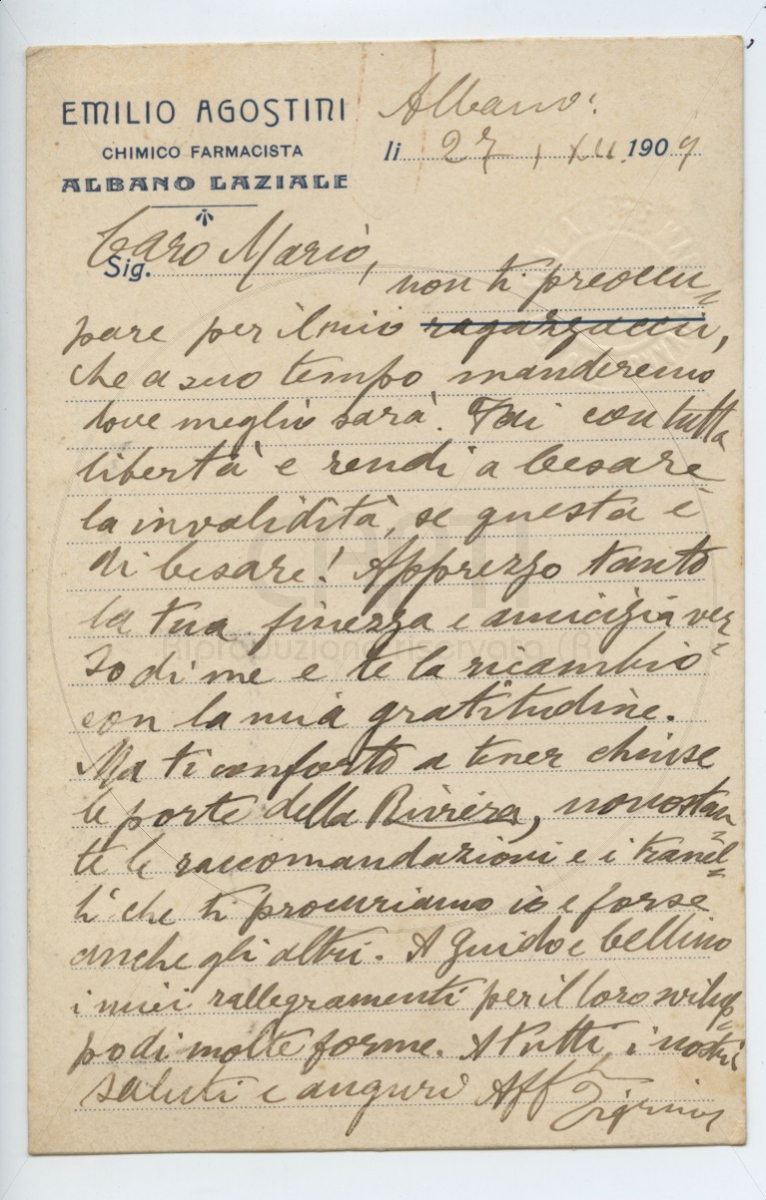 EMILIO AGOSTINI
CHIMICO FARMACISTA
ALBANO LAZIALE
Albano
li 27 / XII 1909
Sig. Caro Mario,
non ti preoccu=
pare per il mio ragazzaccio,
che a suo tempo manderemo
dove meglio sarà. Fai con tutta
libertà e rendi a Cesare
la invalidità, se questa è
di Cesare! Apprezzo tanto
la tua finezza e amicizia ver=
so di me e te la ricambio
con la mia gratitudine.
Ma ti conforto a tener chiuse
le porte della Riviera, nonostan=
te le raccomandazioni e i tranel=
li che ti procuriamo io e forse
anche gli altri. A Guido e Cellino
i miei rallegramenti per il loro svilup=
po di molte forme. A tutti i nostri
saluti e auguri Aff